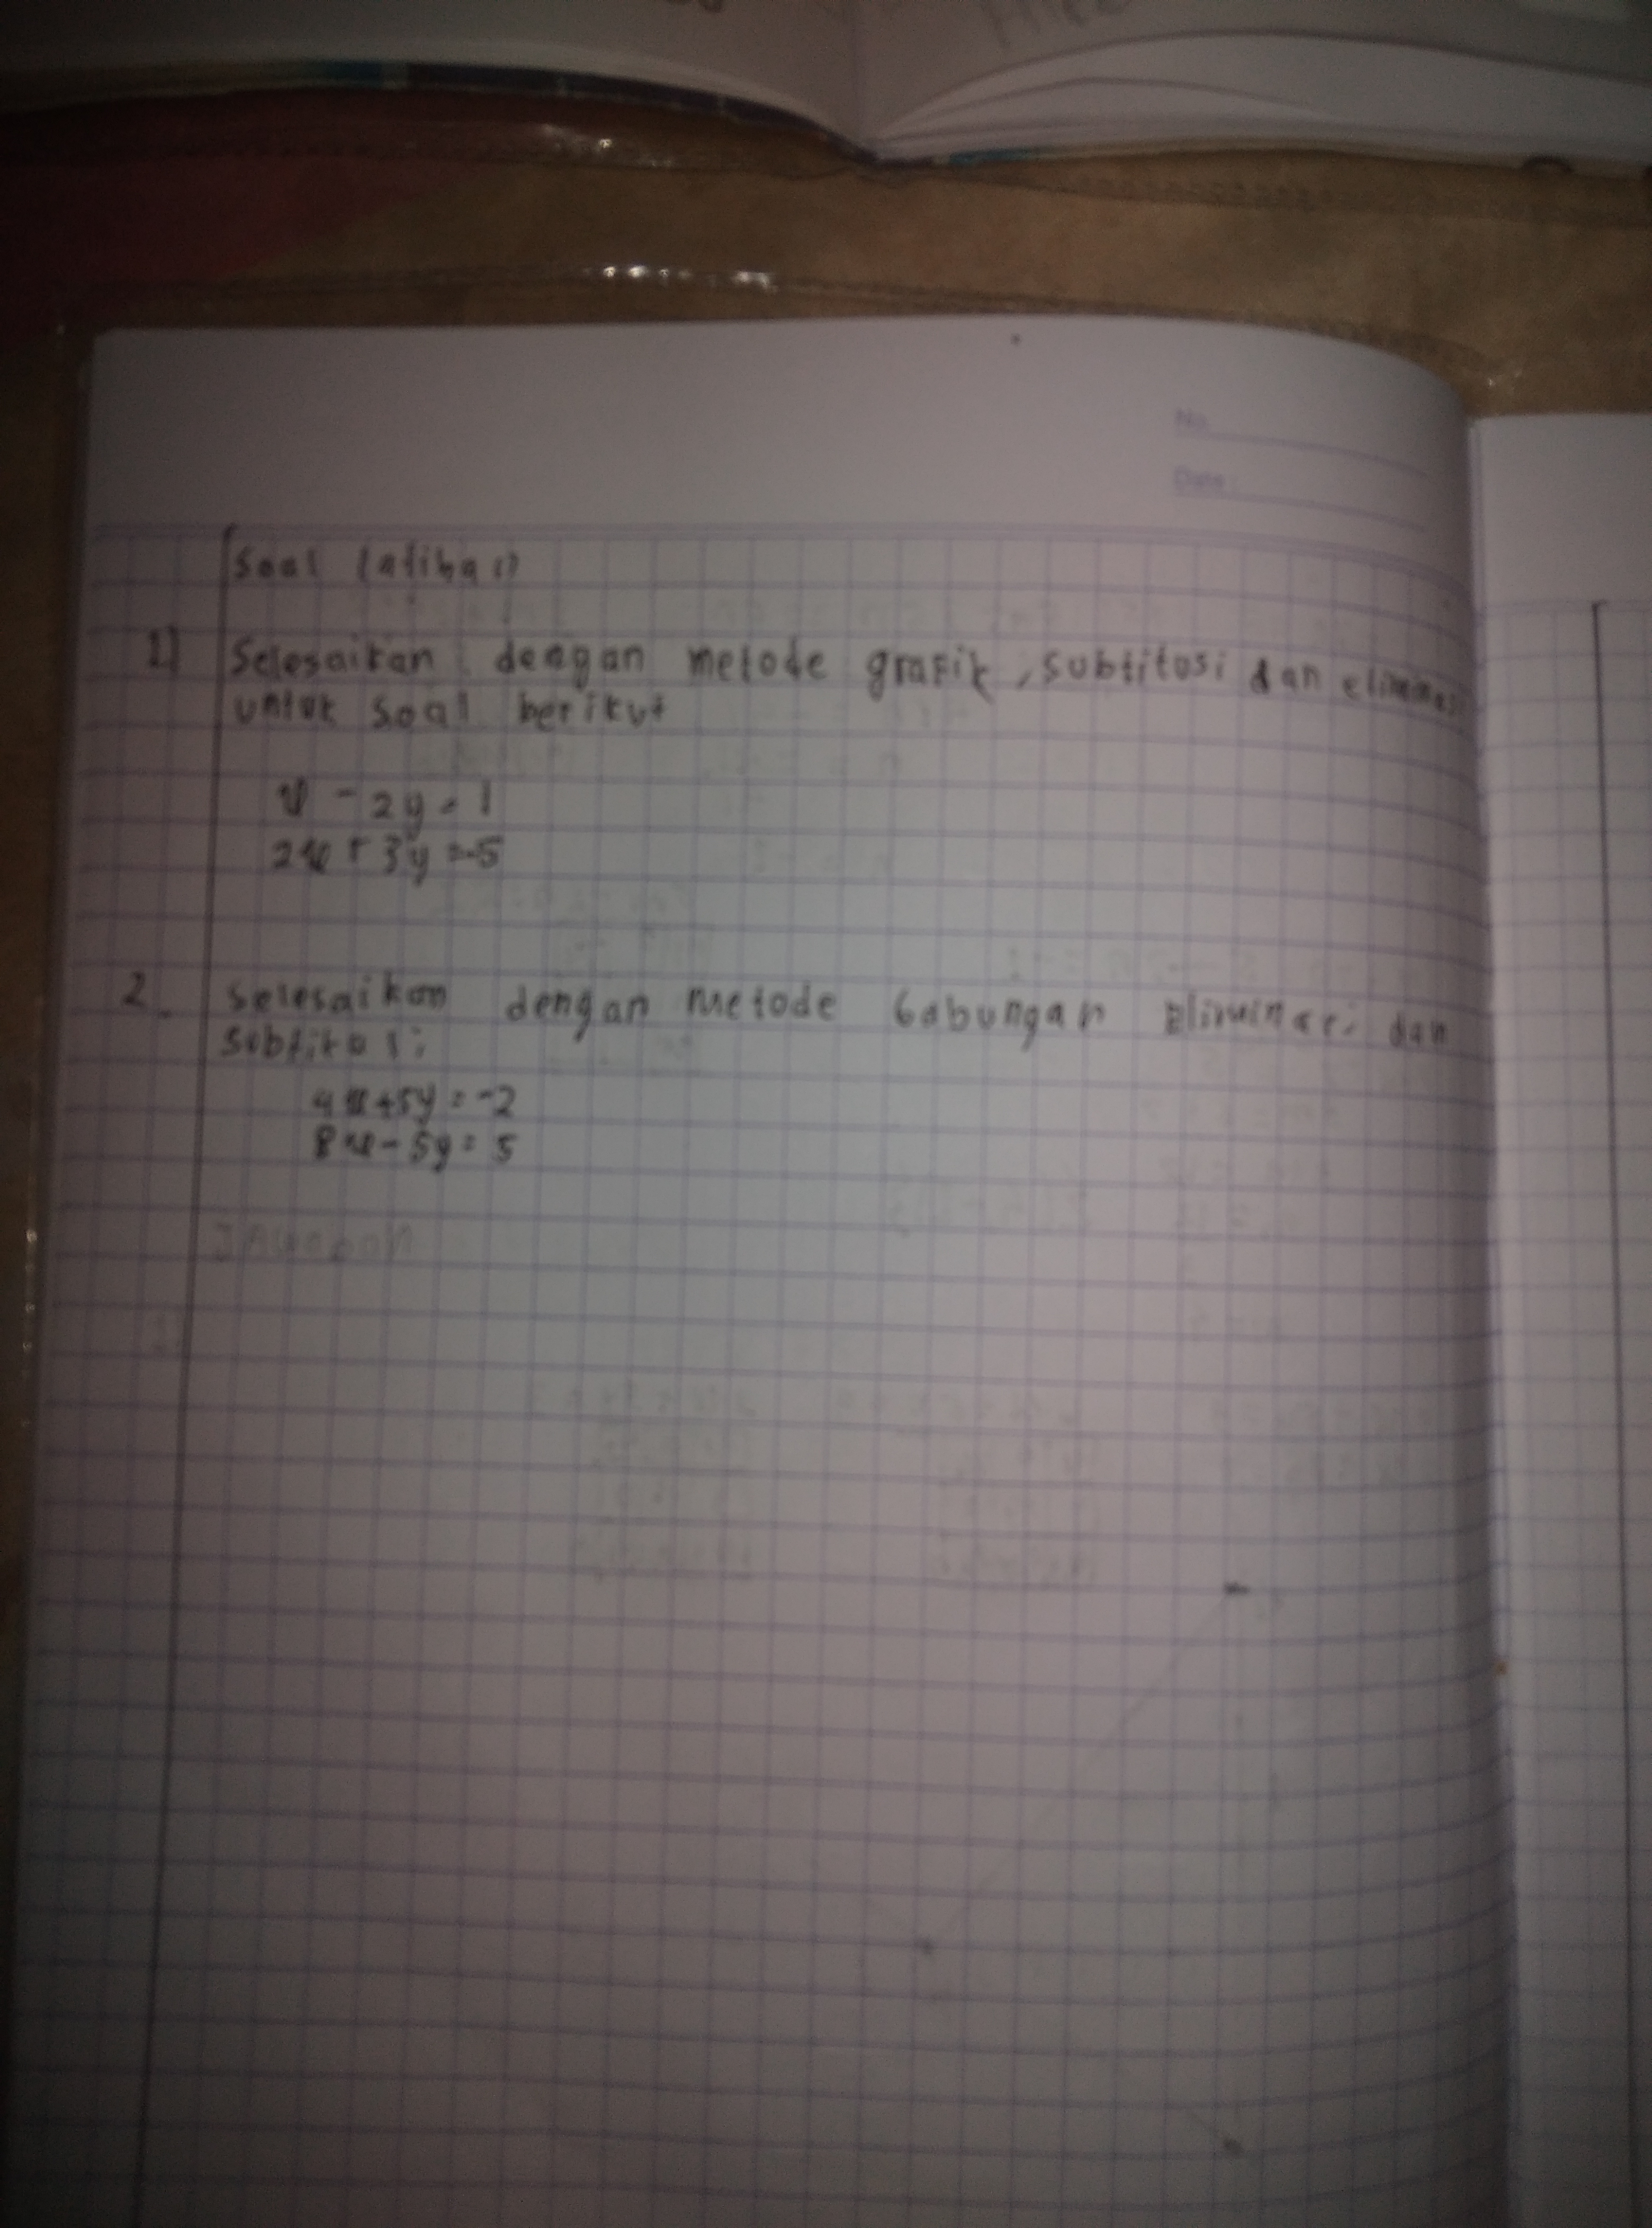 No.
Date:
Soal latihan
1) Selesaikan dengan metode grafik, subtitusi dan eliminasi
untuk soal berikut
x - 2y = 1
2x + 3y = -5
2. Selesaikan dengan metode Gabungan Eliminasi dan
Subtitusi
4x + 5y = -2
8x - 5y = 5
Jawaban